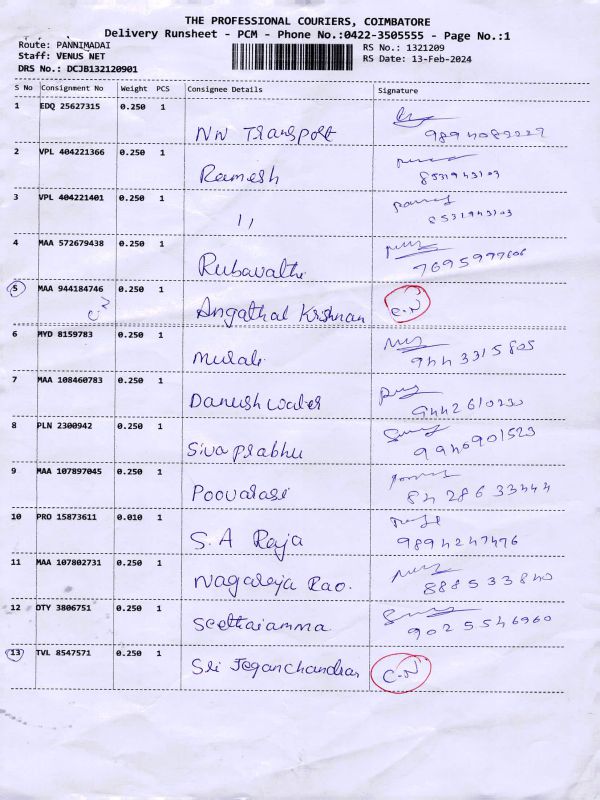 THE PROFESSIONAL COURIERS, COIMBATORE
Delivery Runsheet - PCM - Phone No.:0422-3505555 - Page No.:1
Route: PANNIMADAI
Staff: VENUS NET
DRS No.: DCJB132120901
RS No.: 1321209
RS Date: 13-Feb-2024
S No Consignment No Weight PCS Consignee Details Signature
1 EDQ 25627315 0.250 1 NN Transport
2 VPL 404221366 0.250 1 Ramesh 8531943103
3 VPL 404221401 0.250 1 11 8531943103
4 MAA 572679438 0.250 1 Rubavathi
5 MAA 944184746 0.250 1 Angathal Krishnan C.N
6 MYD 8159783 0.250 1 Murali 9443315805
7 MAA 108460783 0.250 1 Danush water 9442610230
8 PLN 2300942 0.250 1 Siva prabhu 9940901523
9 MAA 107897045 0.250 1 Poovarasi 8428633444
10 PRO 15873611 0.010 1 S.A Raja 9894247476
11 MAA 107802731 0.250 1 Nagaraja Rao.
12 OTY 3806751 0.250 1 Seethaiamma 9025546960
13 TVL 8547571 0.250 1 Sri Jeganchandran C.N